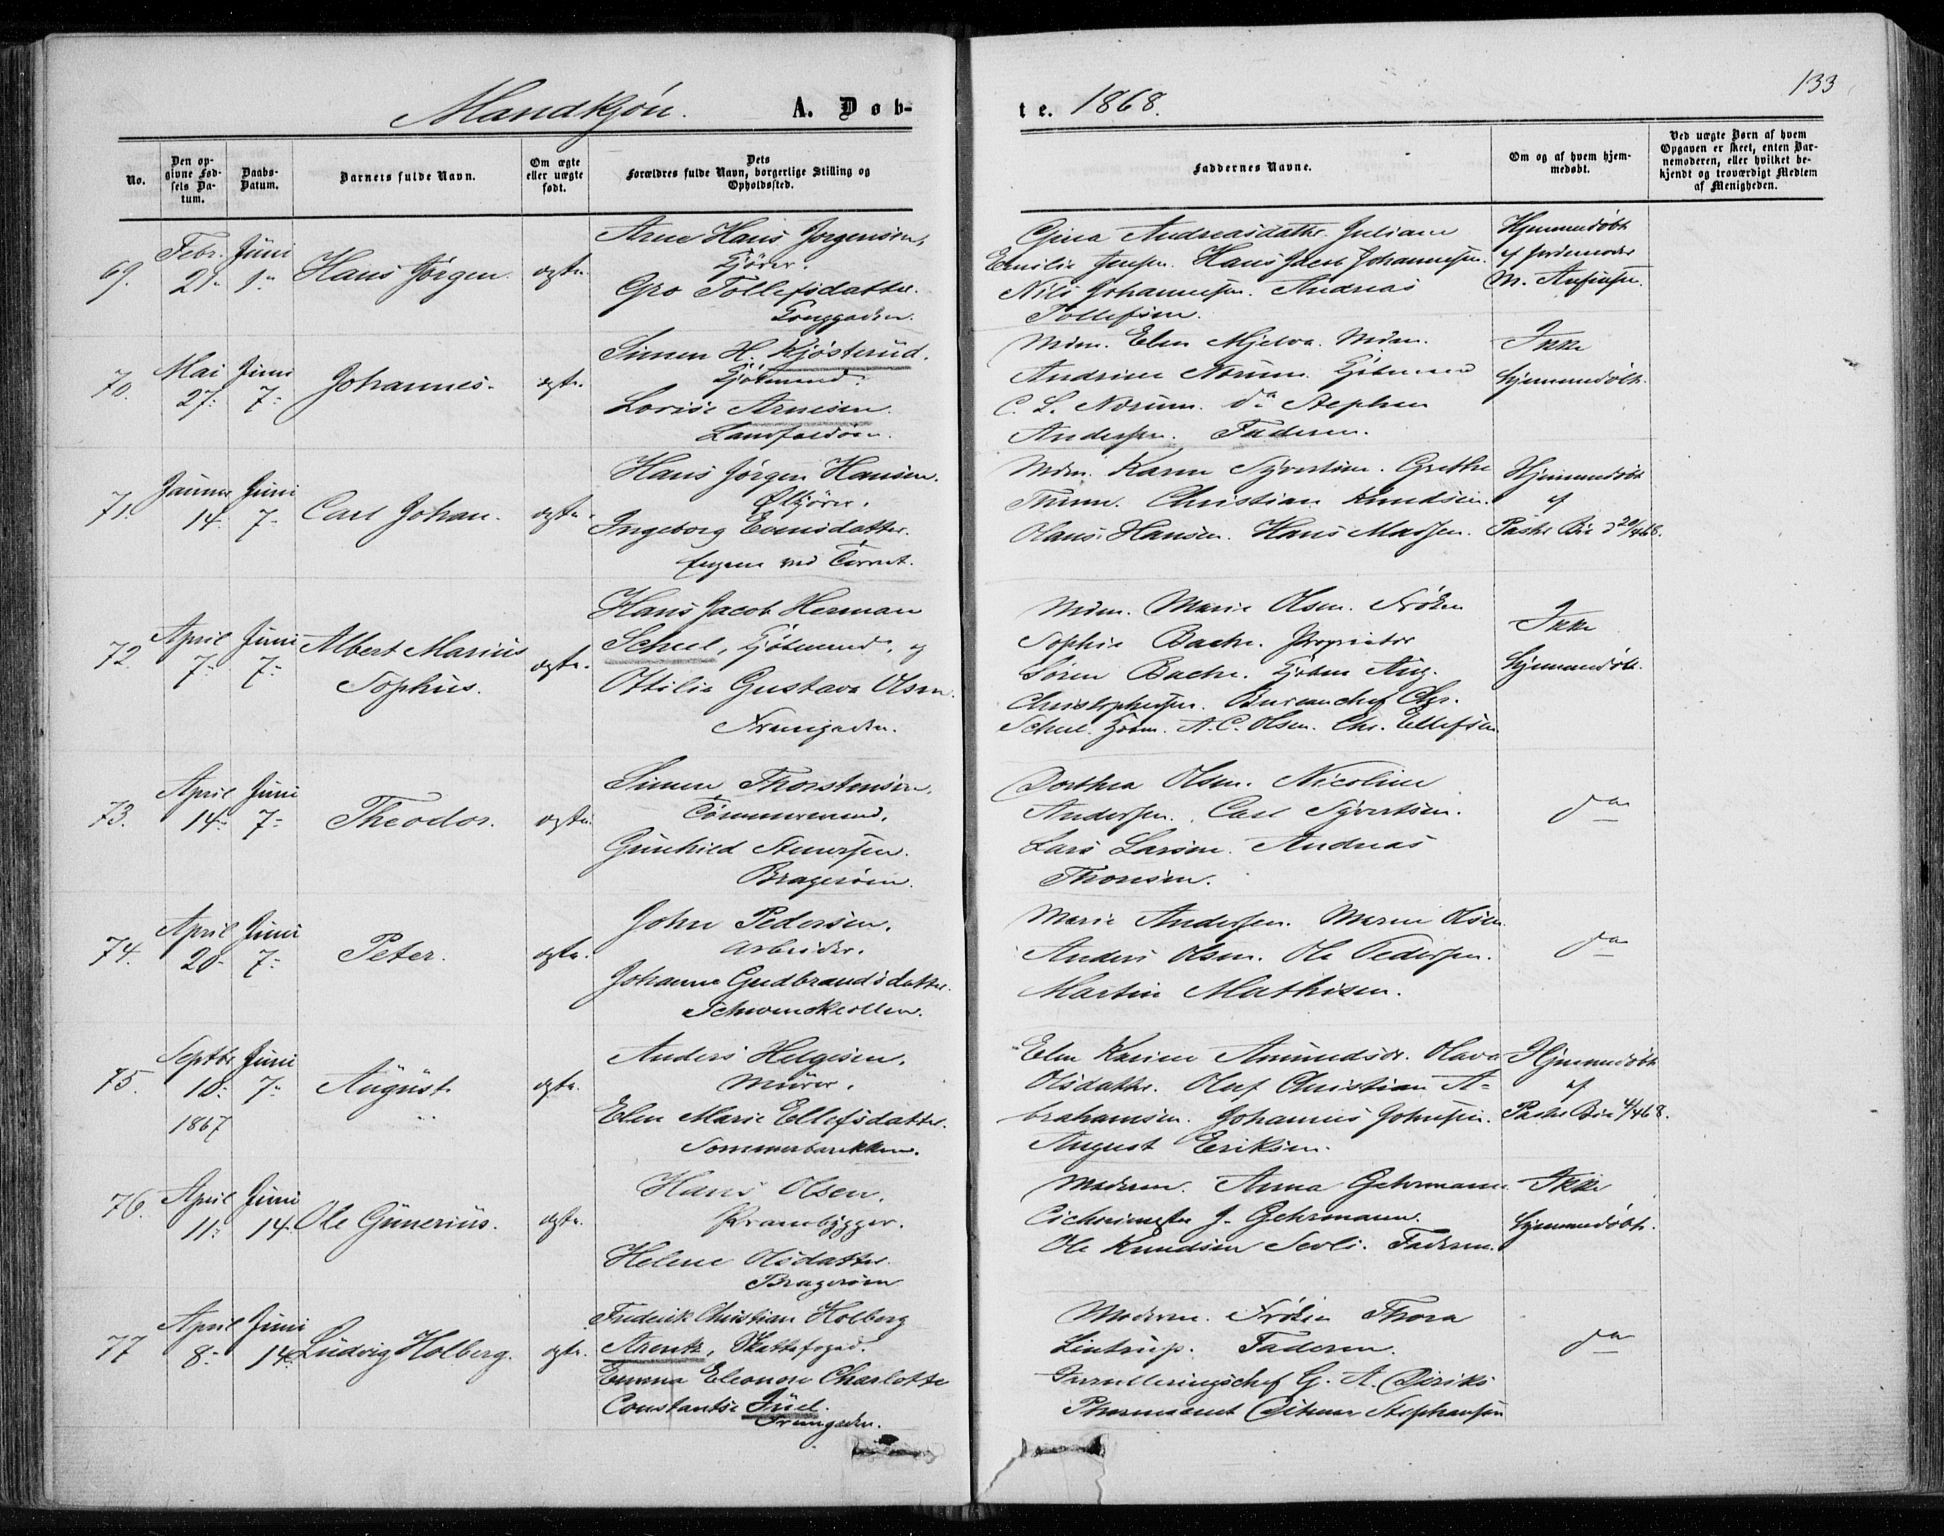 133
Mandkjøn. A. Døb-
te. 1868.
No.
Den op-
givne Fød-
sels Da-
tum.
Daabs-
Datum.
Barnets fulde Navn.
Om ægte
eller uægte
født.
Dets
Forældres fulde Navn, borgerlige Stilling og
Opholdssted.
Faddernes Navne.
Om og af hvem hjem-
medøbt.
Ved uægte Børn af hvem
Opgaven er skeet, enten Bar-
nemoderen, eller hvilket be-
kjendt og troværdigt Medlem
af Menigheden.
69. Febr. 21. Juni 1. Hans Jørgen. ægte.
Arne Hans Jørgensen,
Kjører.
Gro Tollefsdatter.
Gina Andreasdattr. Juliane
Emilie Jensen. Hans Jacob Johannesen.
Nils Johannesen. Andreas
Tollefsen.
Hjemmedøbt
af Jordemoder
M.
70. Mai 27. Juni 7. Johannes. ægte.
Simen H. Kjøsterud.
Kjøbmand.
Lovise Arnesen.
Landfaldøen.
Mdm. Elen Mjelva. Mdm.
Andrine Norum. Kjøbmænd
C. L. Norum. do Stephen
Andersen. Faderen.
Ikke
hjemmedøbt.
71. Januar 14. Juni 7. Carl Johan. ægte.
Hans Jørgen Hansen.
Ølkjører.
Ingeborg Evensdatter.
Engene ved Torvet.
Mdm. Karen Syvertsen. Grethe
Christian Knudsen.
Olaus Hansen. Hans Madsen.
Hjemmedøbt
af
Pastor Bie d 20/4 68.
72. April 7. Juni 7. Albert Marius
Sophus. ægte.
Hans Jacob Herman
Scheel, Kjøbmand, og
Ottilia Gustava Olsen.
Mdm. Marie Olsen. Frøken
Sophie Bache. Proprietær
Søren Bache. Kjøbm Aug.
Christophersen. Bureauchef Chr.
Scheel. Kjøbm. A. C. Olsen. Chr. Ellefsen
Ikke
hjemmedøbt.
73. April 14. Juni 7. Theodor. ægte.
Simen Thorstensen.
Tømmermand.
Gunhild Stenersen.
Bragerøen.
Dorthea Olsen. Nicoline
Andersen. Carl Syvertsen.
Lars Larsen. Andreas
Thorsen.
do
74. April 20. Juni 7. Peter. ægte.
John Pedersen.
Arbeider.
Johanne Gudbrandsdatter.
Schwenckeollen.
Marie Andersen. Maren Olsen
Anders Olsen. Ole Pedersen.
Martin Mathisen.
do
75. Septbr 10. 1867 Juni 7. August. ægte.
Anders Helgesen.
Murer.
Elen Marie Ellefsdatter.
Sommerbærikken.
Elen Karine Amundsdr. Olava
Olsdatter. Oluf Christian A-
brahamsen. Johannes Johnsen.
August Eriksen.
Hjemmedøbt
af
Pastor Bie 4/4 68.
76. April 11. Juni 14. Ole Gunerius. ægte.
Hans Olsen.
Prambygger.
Helene Olsdatter.
Bragerøen
Moderen. Anna Gehrmann.
J. Gehrmann.
Ole Knudsen Sevli. Faderen.
Ikke
hjemmedøbt.
77 April 8. Juni 14. Ludvig Holberg. ægte.
Frederik Christian Holberg
Arentz, Skattefoged.
Emma Eleonore Charlotte
Constantse Juel.
Moderen. Frøken Thora
Lintrup. Faderen.
G. A. Diriks
Pharmaceut Ditmar Stephansen
do